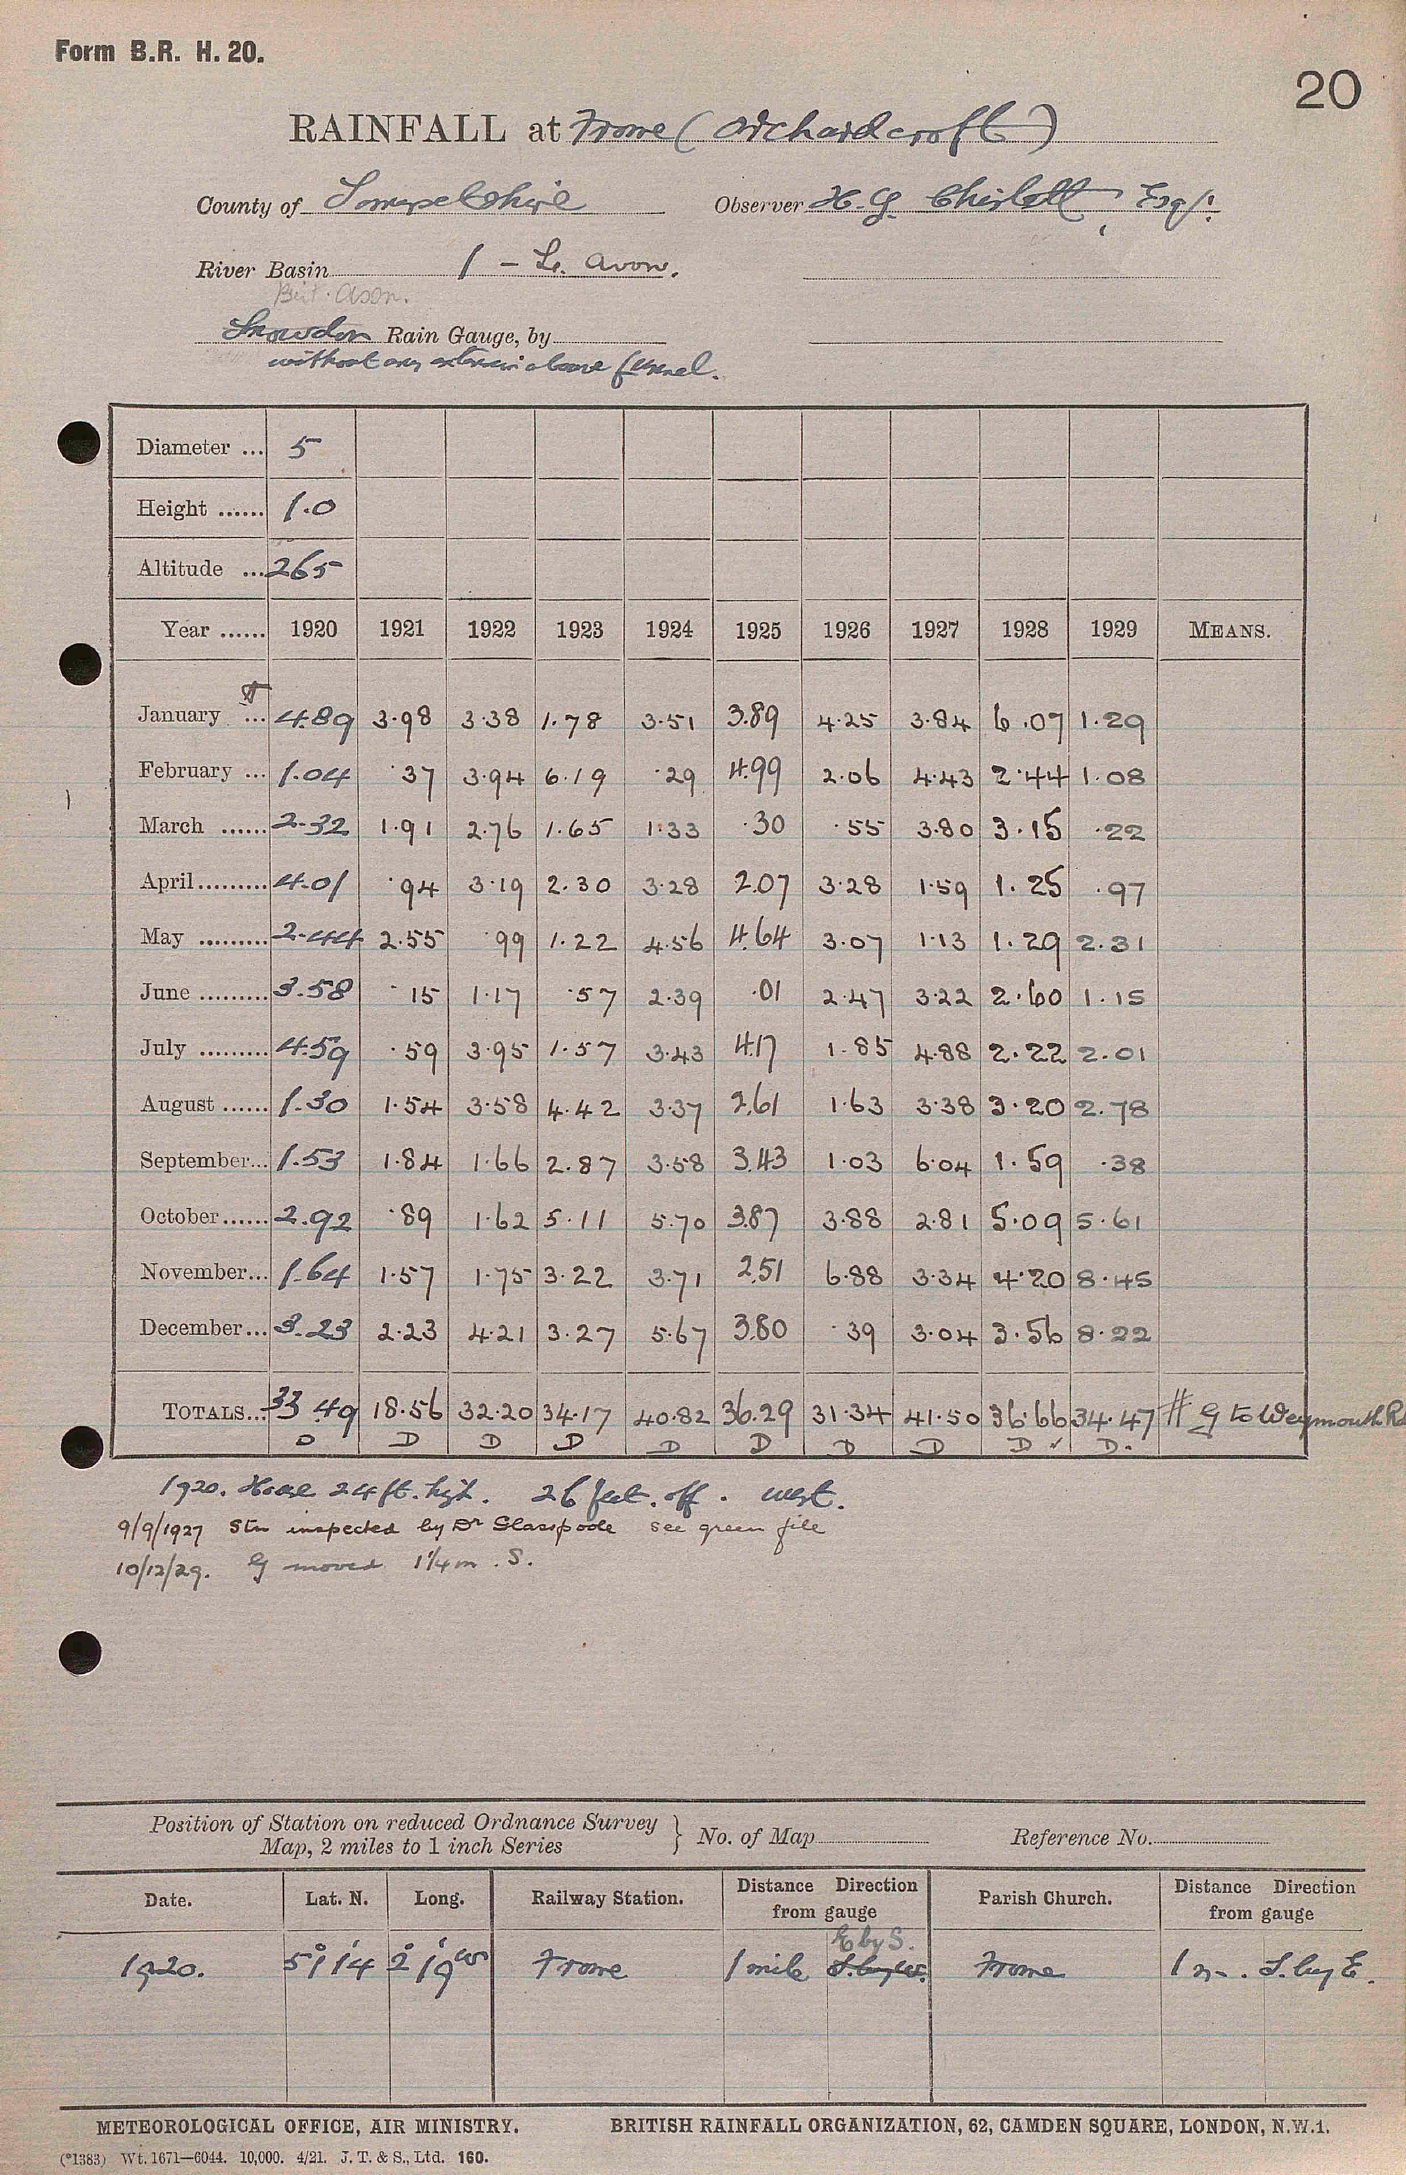 Form B.R. H. 20.
20
RAINFALL at Frome (Orchardcroft)
County of Somersetshire Observer H. G. Chislett, Esqr.
River Basin 1 – L. Avon.
Brit. Ass.
Snowdon Rain Gauge, by
without any extension above funnel.
Diameter ... 5
Height ...... 1.0
Altitude ... 265
Year ...... 1920 1921 1922 1923 1924 1925 1926 1927 1928 1929 MEANS.
January ... 4.89 3.98 3.38 1.78 3.51 3.89 4.25 3.84 6.07 1.29
February ... 1.04 .37 3.94 6.19 .29 4.99 2.06 4.43 2.44 1.08
March ...... 2.32 1.91 2.76 1.65 1.33 .30 .55 3.80 3.15 .22
April......... 4.01 .94 3.19 2.30 3.28 2.07 3.28 1.59 1.25 .97
May ......... 2.44 2.55 .99 1.22 4.56 4.64 3.07 1.13 1.29 2.31
June ......... 3.58 .15 1.17 .57 2.39 .01 2.47 3.22 2.60 1.15
July ......... 4.59 .59 3.95 1.57 3.43 4.17 1.85 4.88 2.22 2.01
August ...... 1.30 1.54 3.58 4.42 3.37 2.61 1.63 3.38 3.20 2.78
September... 1.53 1.84 1.66 2.87 3.58 3.43 1.03 6.04 1.59 .38
October...... 2.92 .89 1.62 5.11 5.70 3.87 3.88 2.81 5.09 5.61
November... 1.64 1.57 1.75 3.22 3.71 2.51 6.88 3.34 4.20 8.45
December... 3.23 2.23 4.21 3.27 5.67 3.80 .39 3.04 3.56 8.22
TOTALS... 33.49 18.56 32.20 34.17 40.82 36.29 31.34 41.50 36.66 34.47 # G to Weymouth Rd
D D D D D D D D D ✓ D.
1920. House 24 ft. high. 26 feet. off. west.
9/9/1927 Stn inspected by Dr Glasspoole see green file
10/12/29. G moved 1¼ m. S.
Position of Station on reduced Ordnance Survey
Map, 2 miles to 1 inch Series } No. of Map Reference No.
Date. Lat. N. Long. Railway Station. Distance Direction from gauge Parish Church. Distance Direction from gauge
E by S.
1920. 51° 14' 2° 19' W Frome 1 mile S. by W. Frome 1 m. S. by E.
METEOROLOGICAL OFFICE, AIR MINISTRY. BRITISH RAINFALL ORGANIZATION, 62, CAMDEN SQUARE, LONDON, N.W.1.
(*1383) Wt. 1671—6044. 10,000. 4/21. J. T. & S., Ltd. 160.